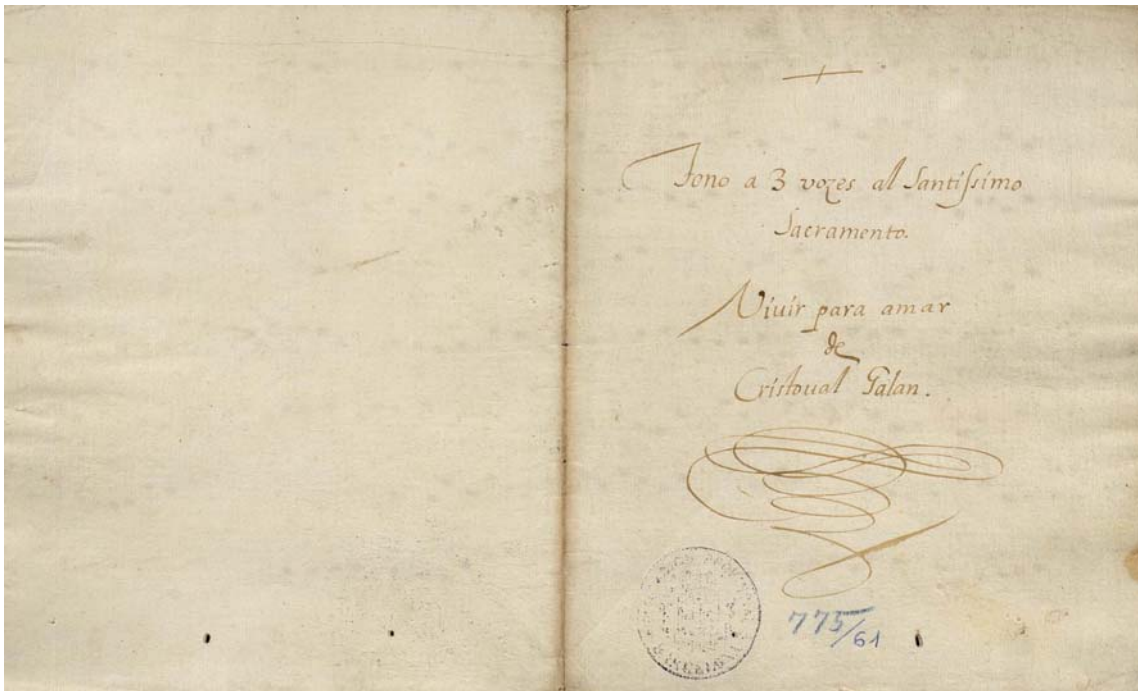 Tono a 3 vozes al Santissimo
Sacramento.
Viuir para amar
de
Cristoual Galan.
775/61